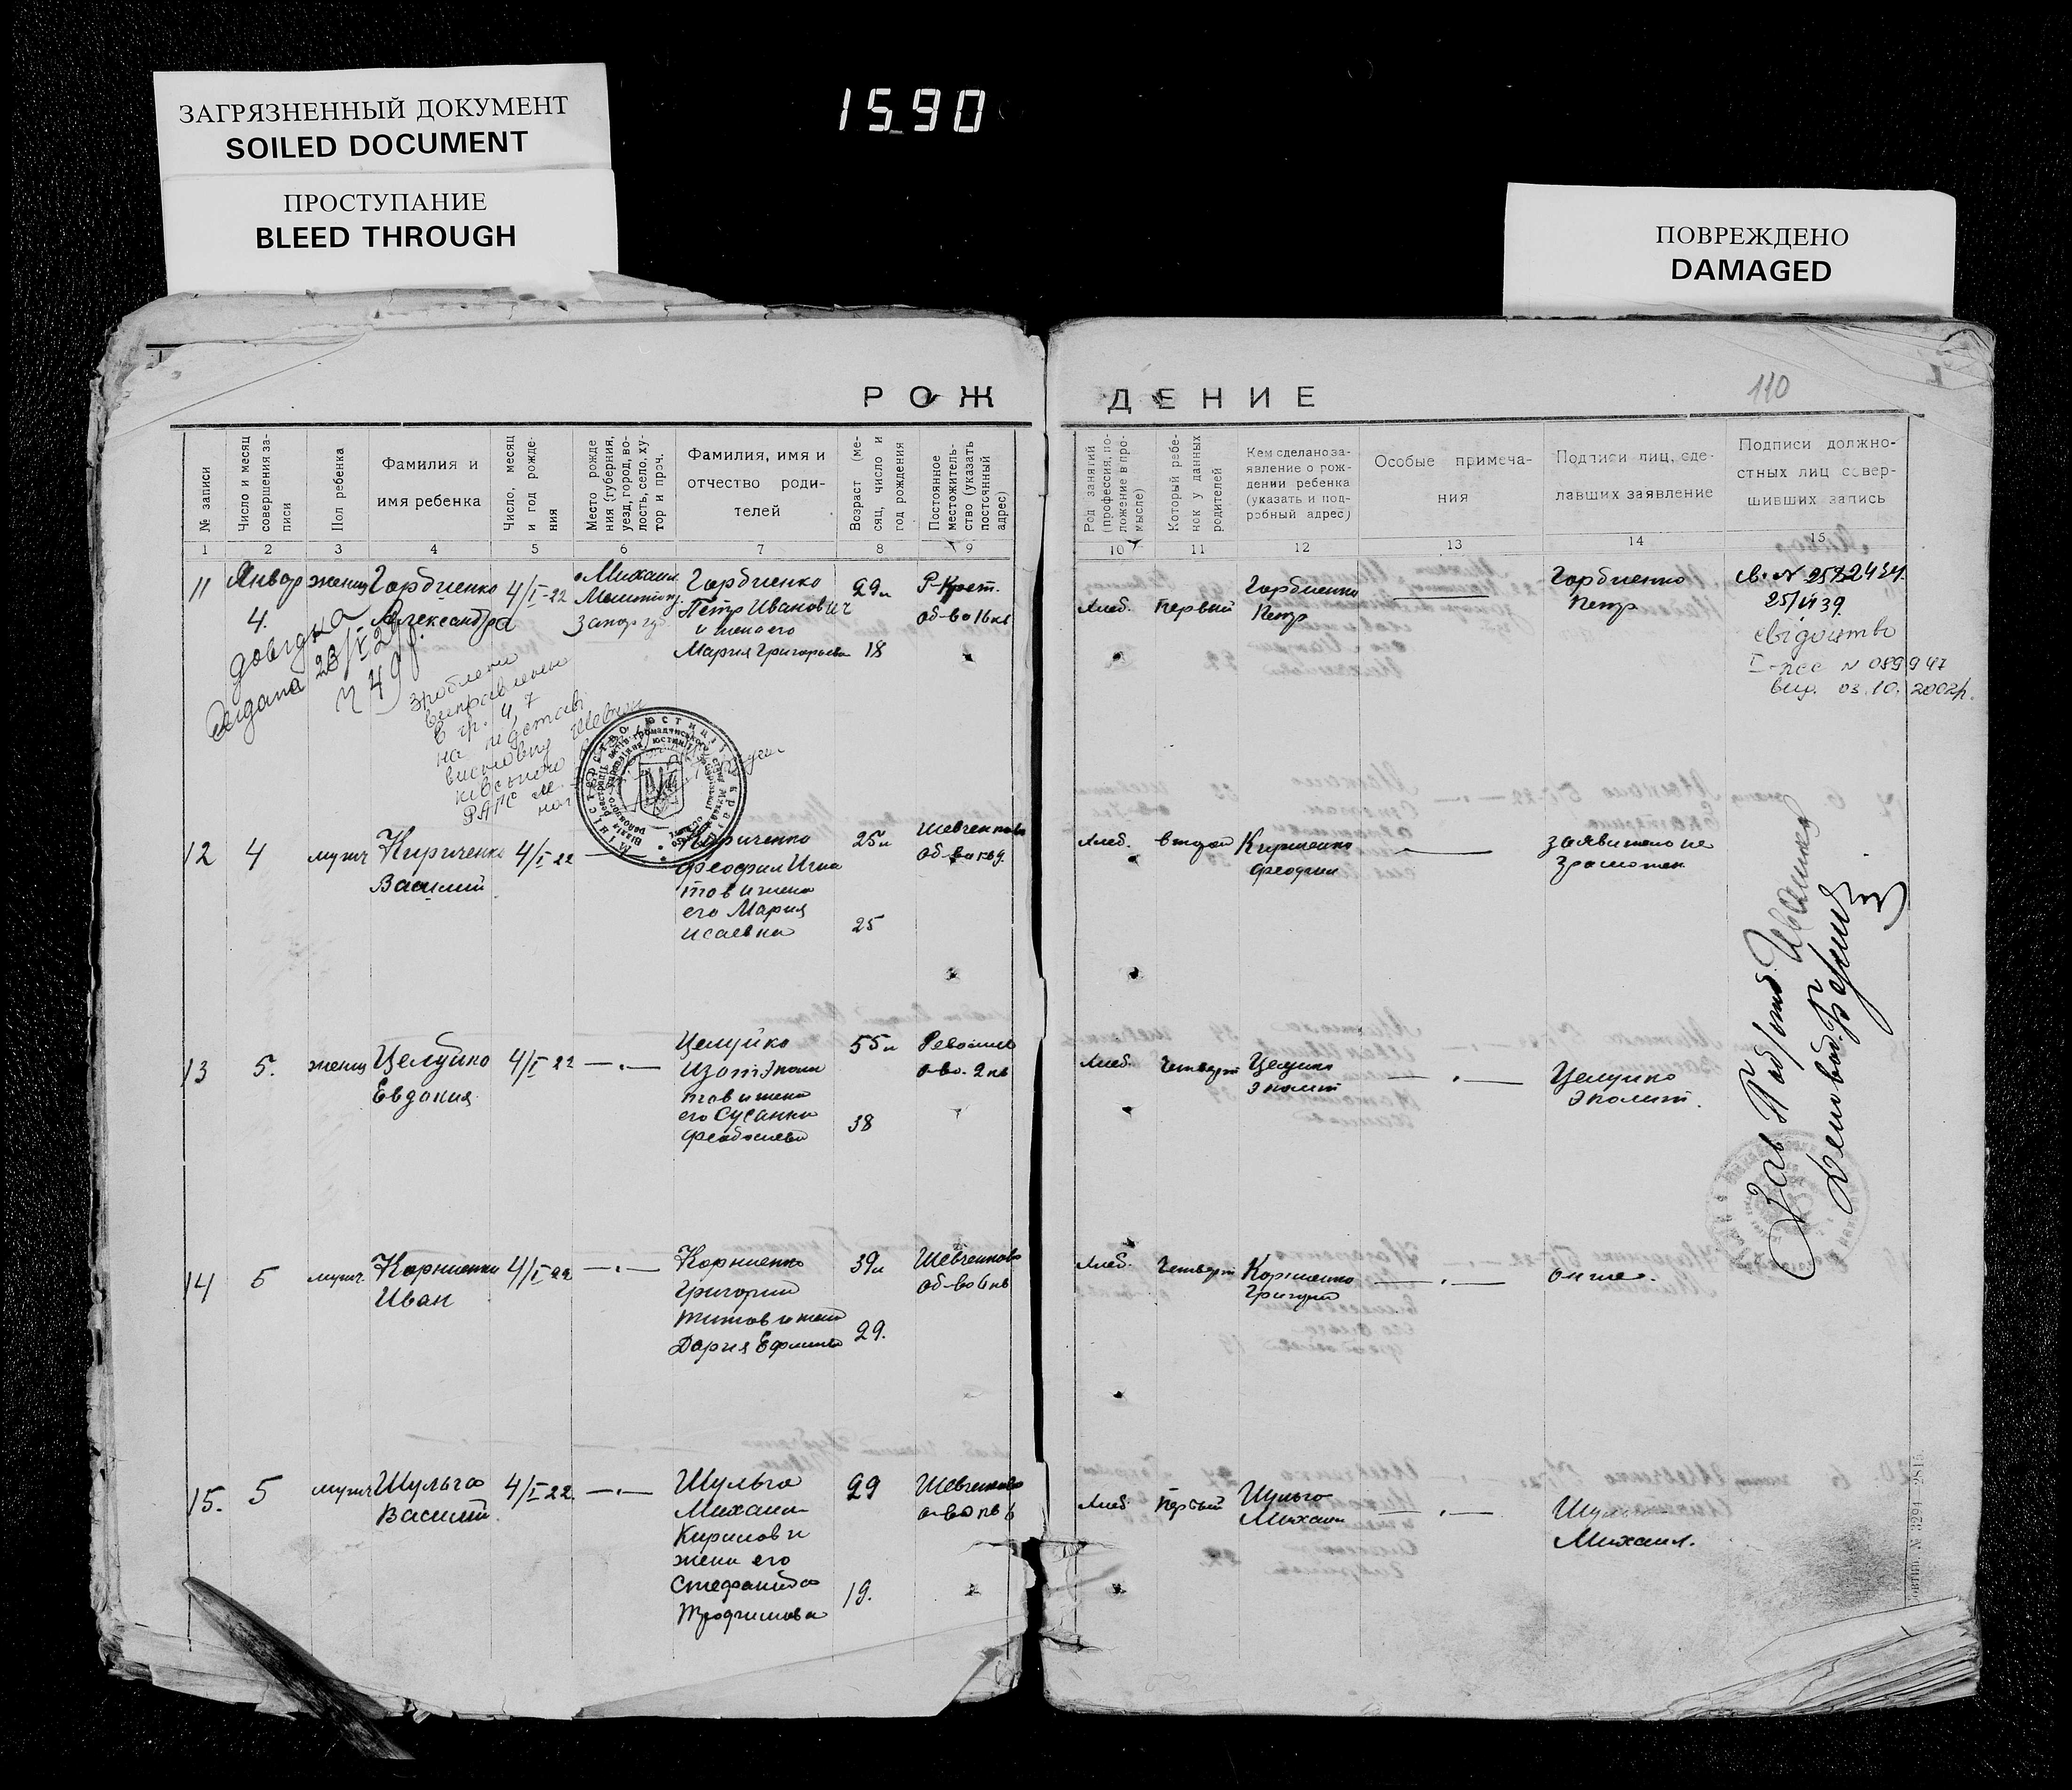 ЗАГРЯЗНЕННЫЙ ДОКУМЕНТ
SOILED DOCUMENT
ПРОСТУПАНИЕ
BLEED THROUGH
1590
ПОВРЕЖДЕНО
DAMAGED
110
РОЖДЕНИЕ
№ записи
Число и месяц
совершения за-
писи
Пол ребенка
Фамилия и
имя ребенка
Число, месяц
и год рожде-
ния
Место рожде
ния (губерния,
уезд, город, во-
лость, село, ху-
тор и проч.
Фамилия, имя и
отчество роди-
телей
Возраст (ме-
сяц, число и
год рождения
Постоянное
местожитель-
ство (указать
постоянный
адрес)
Род занятий
(профессия, по-
ложение в про-
мысле)
Который ребе-
нок у данных
родителей
Кем сделано за-
явление о рож-
дении ребенка
(указать и под-
робный адрес)
Особые примеча-
ния
Подписи лиц, сде-
лавших заявление
Подписи должно-
стных лиц совер-
шивших запись
1 2 3 4 5 6 7 8 9 10 11 12 13 14 15
11
Январ
4.
женщ
Горбиенко
Александра
4/I-22
Михаил.
Запор губ
Горбиенко
Петр Иванович
и жена его
Мария Григорьева
29
18
Р-Крест.
об-во 16 кв
Хлеб.
первый
Горбиенко
Петр
Горбиенко
Петр
25/VI 39
свідоцтво
I-
N 089947
вид. 03.10.2002р.
довідка
видана 23/V 29
N 49
зроблені
виправлення
в гр. 4, 7
на підставі
висновку
РАГС м.
12
4
мужч
Кириченко
Василий
4/I 22
Кириченко
Феофил Игна
тов и жена
его Мария
Исаевна
25
25
Шевченково
Хлеб.
второй
Кириченко
Феофил
заявитель не
грамотен
13
5.
женщ
Целуйко
Евдокия
4/I 22
Целуйко
Изот
тов и жена
его Сусанна
55
38
о-во. 2 кв
Хлеб.
четверт
Целуйко
Целуйко
14
5
мужч.
Корниенко
Иван
4/I 22
Корниенко
Григорий
Титов и жена
Дария Ефимова
39
29.
Шевченково
об-во 6 кв
Хлеб.
четверт
Корниенко
Григорий
он же.
15.
5
мужч
Шульга
Василий
4/I 22.
Шульга
Михаил
Кирилов и
жена его
Стефанида
Трофимова
29
19.
Шевченково
о-во кв 6
Хлеб.
первый
Шульга
Михаил
Шульга
Михаил.
Зав
Деловод.